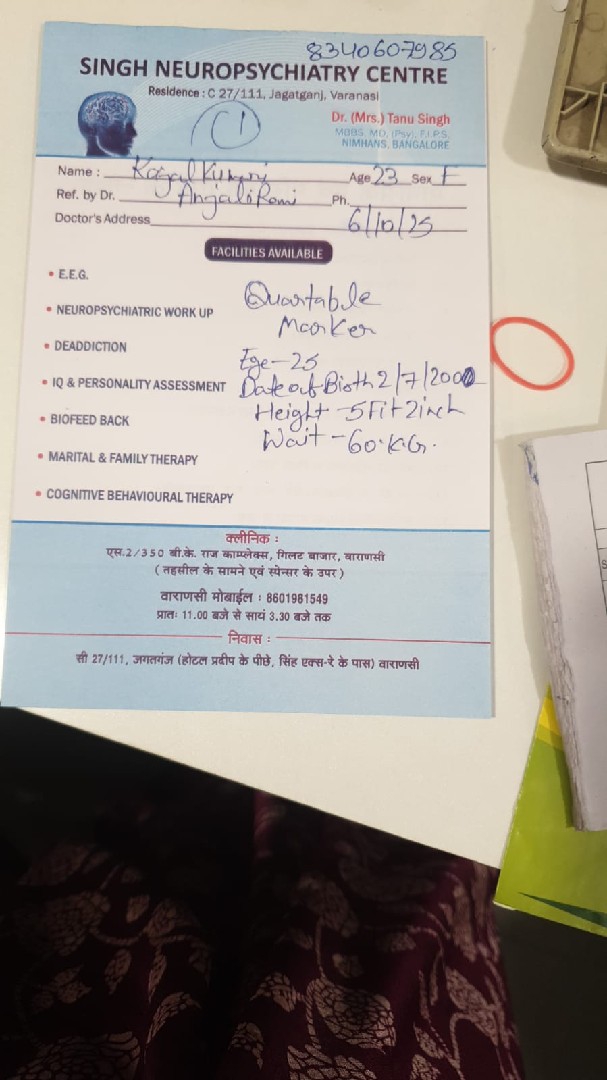 8340607985
SINGH NEUROPSYCHIATRY CENTRE
Residence : C 27/111, Jagatganj, Varanasi
1
Dr. (Mrs.) Tanu Singh
MBBS, MD, (Psy), F.I.P.S.
NIMHANS, BANGALORE
Name : Kajal Kumari Age 23 Sex F
Ref. by Dr. Anjali Rani Ph.
Doctor's Address 6/10/25
FACILITIES AVAILABLE
• E.E.G.
• NEUROPSYCHIATRIC WORK UP
• DEADDICTION
• IQ & PERSONALITY ASSESSMENT
• BIOFEED BACK
• MARITAL & FAMILY THERAPY
• COGNITIVE BEHAVIOURAL THERAPY
Quartable
Marker
Ege-25
Date of Bioth 2/7/2000
Height -5Fit 2inch
Wait -60.K.G.
क्लीनिक :
एस.2/350 बी.के. राज काम्प्लेक्स, गिलट बाजार, वाराणसी
( तहसील के सामने एवं स्पेन्सर के उपर )
वाराणसी मोबाईल : 8601981549
प्रातः 11.00 बजे से सायं 3.30 बजे तक
निवास :
सी 27/111, जगतगंज (होटल प्रदीप के पीछे, सिंह एक्स-रे के पास) वाराणसी